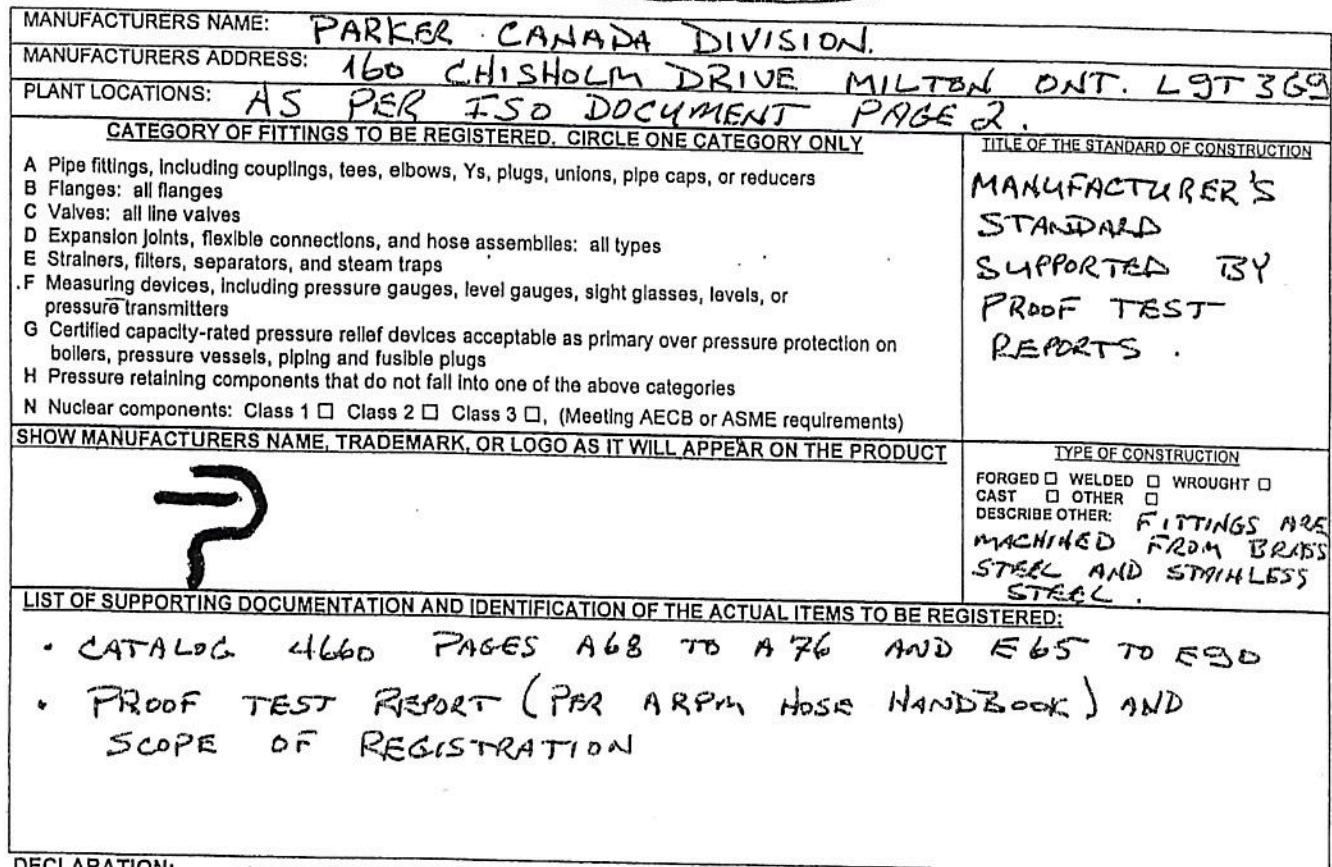 MANUFACTURERS NAME: PARKER CANADA DIVISION.
MANUFACTURERS ADDRESS: 160 CHISHOLM DRIVE MILTON ONT. L9T 3G9
PLANT LOCATIONS: AS PER ISO DOCUMENT PAGE 2.
CATEGORY OF FITTINGS TO BE REGISTERED. CIRCLE ONE CATEGORY ONLY
A Pipe fittings, including couplings, tees, elbows, Ys, plugs, unions, pipe caps, or reducers
B Flanges: all flanges
C Valves: all line valves
D Expansion joints, flexible connections, and hose assemblies: all types
E Strainers, filters, separators, and steam traps
F Measuring devices, including pressure gauges, level gauges, sight glasses, levels, or
pressure transmitters
G Certified capacity-rated pressure relief devices acceptable as primary over pressure protection on
boilers, pressure vessels, piping and fusible plugs
H Pressure retaining components that do not fall into one of the above categories
N Nuclear components: Class 1 ☐ Class 2 ☐ Class 3 ☐, (Meeting AECB or ASME requirements)
TITLE OF THE STANDARD OF CONSTRUCTION
MANUFACTURER'S
STANDARD
SUPPORTED BY
PROOF TEST
REPORTS.
SHOW MANUFACTURERS NAME, TRADEMARK, OR LOGO AS IT WILL APPEAR ON THE PRODUCT
TYPE OF CONSTRUCTION
FORGED ☐ WELDED ☐ WROUGHT ☐
CAST ☐ OTHER ☐
DESCRIBE OTHER: FITTINGS ARE
MACHINED FROM BRASS
STEEL AND STAINLESS
STEEL.
LIST OF SUPPORTING DOCUMENTATION AND IDENTIFICATION OF THE ACTUAL ITEMS TO BE REGISTERED:
• CATALOG 4660 PAGES A68 TO A76 AND E65 TO E90
• PROOF TEST REPORT (PER ARPM HOSE HANDBOOK) AND
SCOPE OF REGISTRATION
DECLARATION: